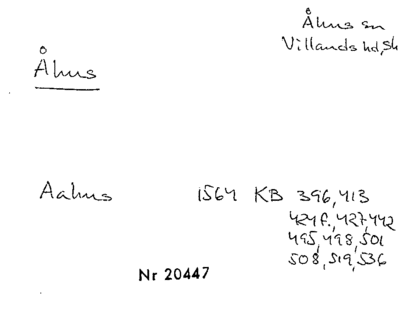 Åhus sn
Villands hd, Sk
Åhus
Aahus 1564 KB 396, 413
424f., 427, 442
495, 498, 501
508, 519, 536
Nr 20447